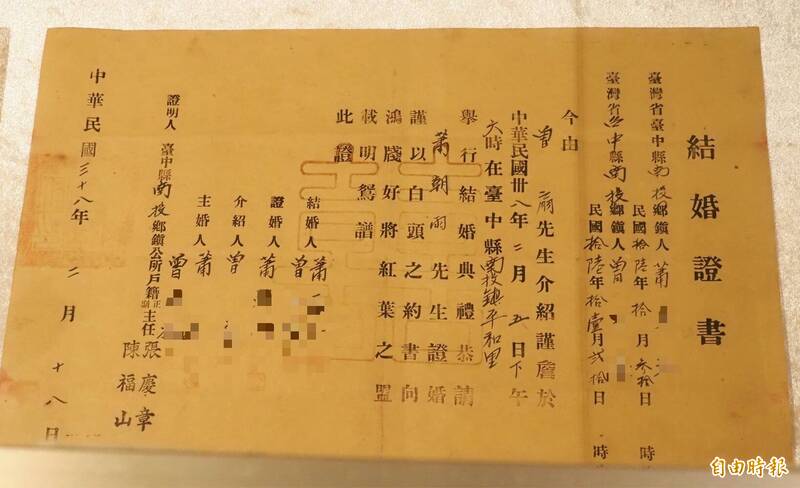 結婚證書
臺灣省臺中縣南投鄉鎮人蕭
民國拾陸年拾月叁拾日 時
臺灣省台中縣南投鄉鎮人曾
民國拾陸年拾壹月貳拾日 時
今由
曾 爾先生介紹謹詹於
中華民國卅八年二月五日下午
六時在臺中縣南投鎮平和里
舉行結婚典禮恭請
蕭朝雨先生證婚
謹以白頭之約書向
鴻牋好將紅葉之盟
載明鴛譜
此證
結婚人 蕭
曾
證婚人 蕭
介紹人 曾
主婚人 蕭
曾
證明人 臺中縣南投鄉鎮公所戶籍正副主任張慶章
陳福山
中華民國三十八年 二月 十八日
自由時報